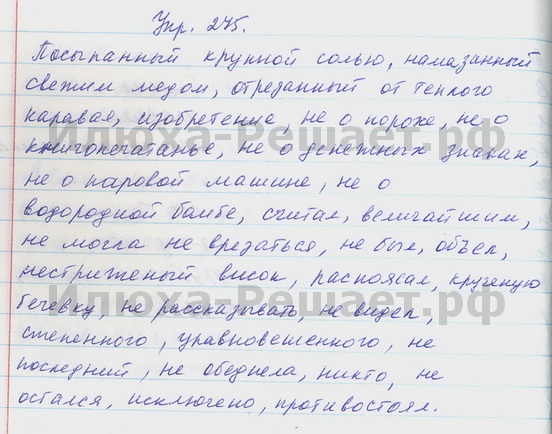 Упр. 275.
Посыпанный крупной солью, намазанный
свежим медом, отрезанный от теплого
каравая, изобретение, не о порохе, не о
книгопечатанье, не о денежных знаках,
не о паровой машине, не о
водородной бомбе, считал, величайшим,
не могла не врезаться, не был, объел,
нестриженый висок, распоясал, крученую
бечевку, не рассказывать, не видел,
степенного, уравновешенного, не
последний, не обеднела, никто, не
остался, исключено, противостоял.
Илюха-Решает.рф
Илюха-Решает.рф